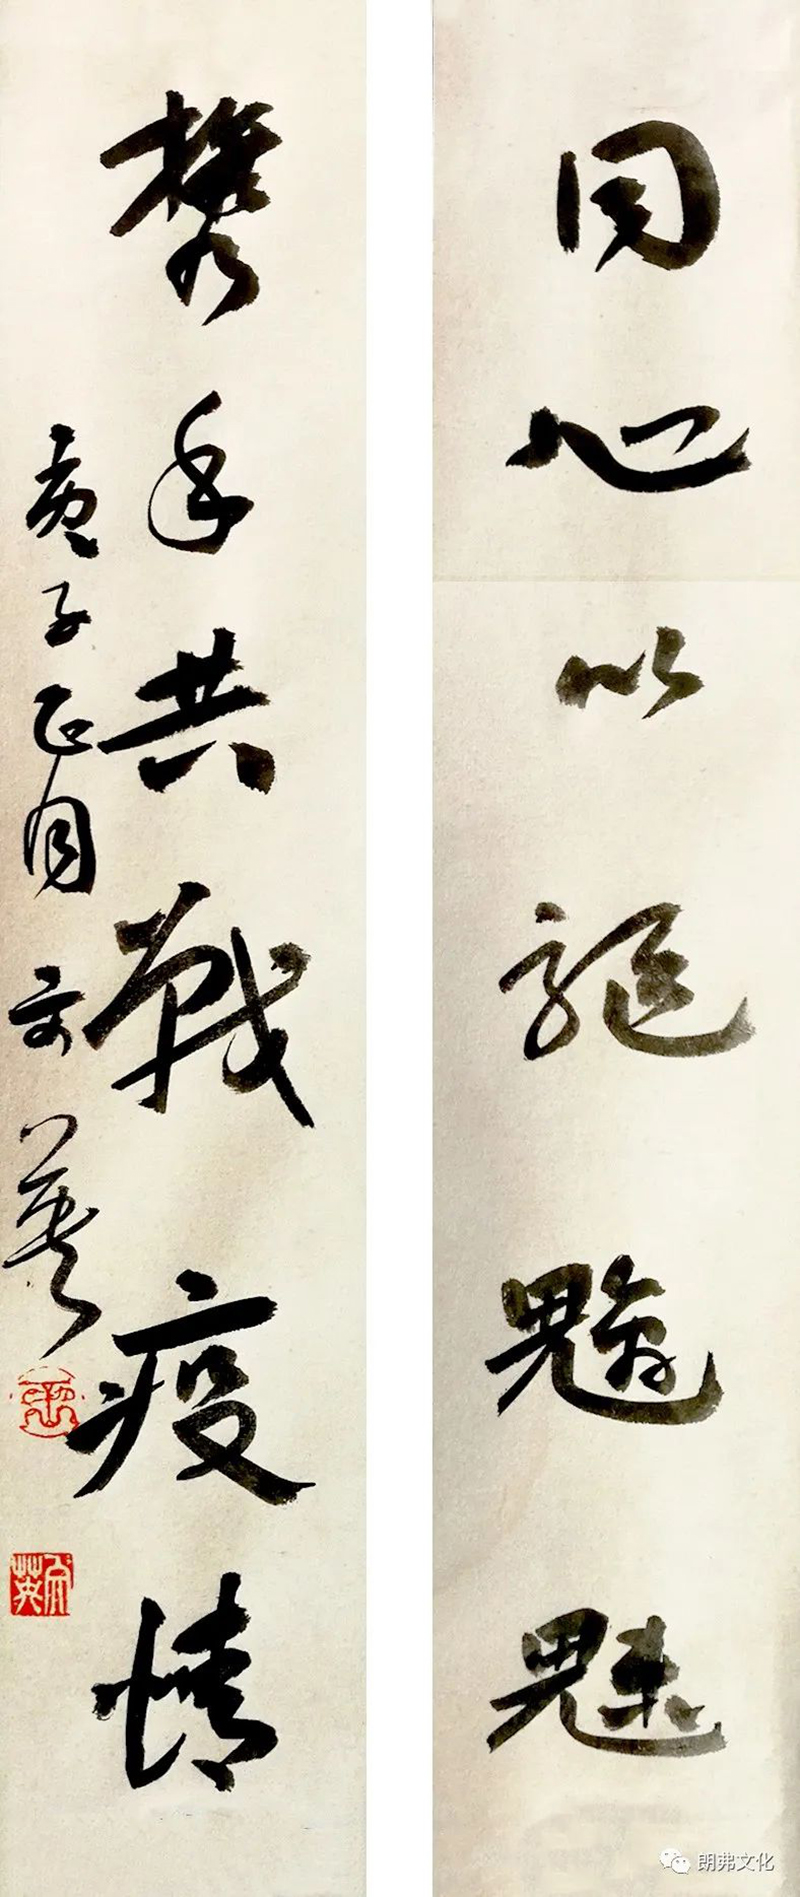 同心以驱魑魅
攜手共戰疫情
庚子正月
英
朗弗文化